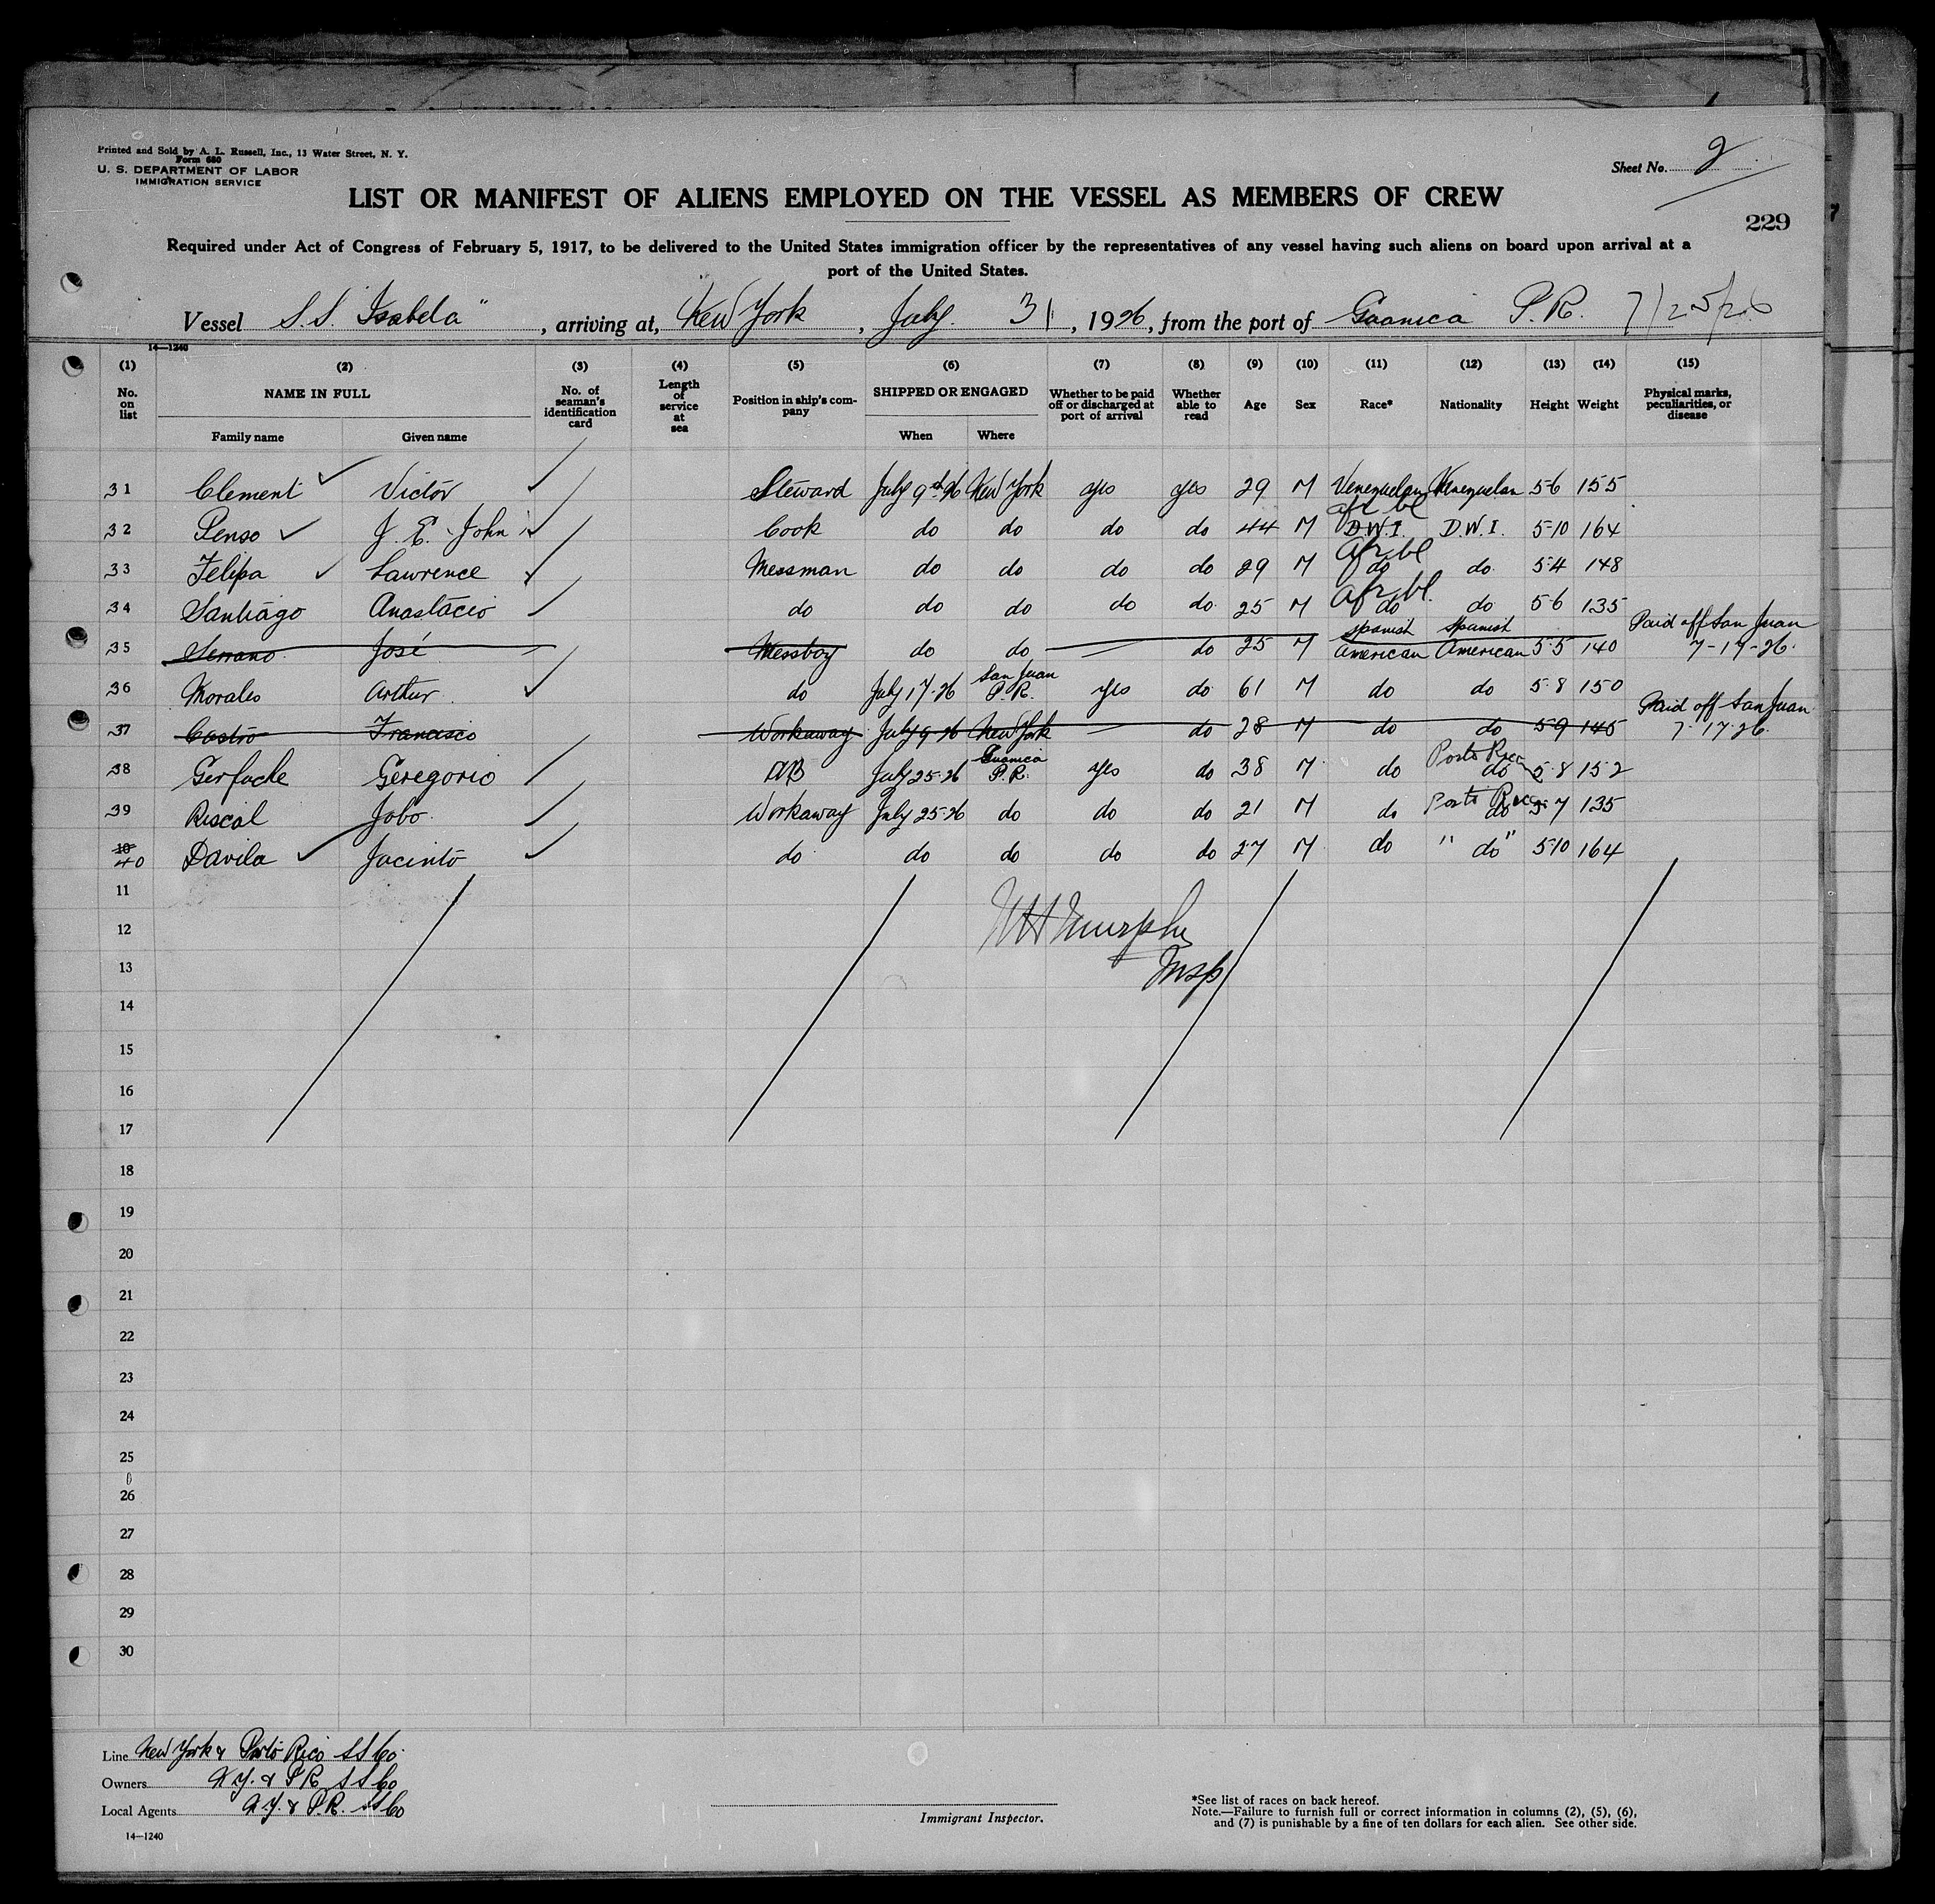 Printed and Sold by A. L. Russell, Inc., 13 Water Street, N. Y.
Form 680
U. S. DEPARTMENT OF LABOR
IMMIGRATION SERVICE
Sheet No. 2
LIST OR MANIFEST OF ALIENS EMPLOYED ON THE VESSEL AS MEMBERS OF CREW
229
Required under Act of Congress of February 5, 1917, to be delivered to the United States immigration officer by the representatives of any vessel having such aliens on board upon arrival at a
port of the United States.
Vessel S.S. "Isabela", arriving at, New York, July 31, 1926, from the port of Guanica P.R. 7/25/26
14—1240
(1) (2) (3) (4) (5) (6) (7) (8) (9) (10) (11) (12) (13) (14) (15)
No. on list NAME IN FULL No. of seaman's identification card Length of service at sea Position in ship's company SHIPPED OR ENGAGED Whether to be paid off or discharged at port of arrival Whether able to read Age Sex Race* Nationality Height Weight Physical marks, peculiarities, or disease
Family name Given name When Where
31 Clement Victor Steward July 9th 26 New York yes yes 29 M Venezuelan Venezuelan 5-6 155
32 Penso J. E. John Cook do do do do 44 M afr bl D.W.I. D.W.I. 5-10 164
33 Felipa Lawrence Messman do do do do 29 M Afr. bl do do 5-4 148
34 Santiago Anastacio do do do do do 25 M Afr. bl. do do 5-6 135
35 Serrano José Messboy do do do 25 M Spanish American Spanish American 5-5 140 Paid off San Juan 7-17-26.
36 Morales Arthur do July 17-26 San Juan P.R. yes do 61 M do do 5-8 150
37 Castro Francisco Workaway July 9-26 New York do 28 M do do 5-9 145 Paid off San Juan 7-17-26
38 Gerfache Geregorio AB July 25-26 Guanica P.R. yes do 38 M do Porto Rico do 5-8 152
39 Riscal Jobo Workaway July 25-26 do do do 21 M do Porto Rico do 5-7 135
10 40 Davila Jacinto do do do do do 27 M do " do " 5-10 164
11
12 W H Murphy
13 Insp
14
15
16
17
18
19
20
21
22
23
24
25
26
27
28
29
30
Line New York & Porto Rico SS Co.
Owners N.Y. & P.R. SS Co
Local Agents N.Y. & P.R. SS Co
14—1240
Immigrant Inspector.
*See list of races on back hereof.
Note.—Failure to furnish full or correct information in columns (2), (5), (6),
and (7) is punishable by a fine of ten dollars for each alien. See other side.